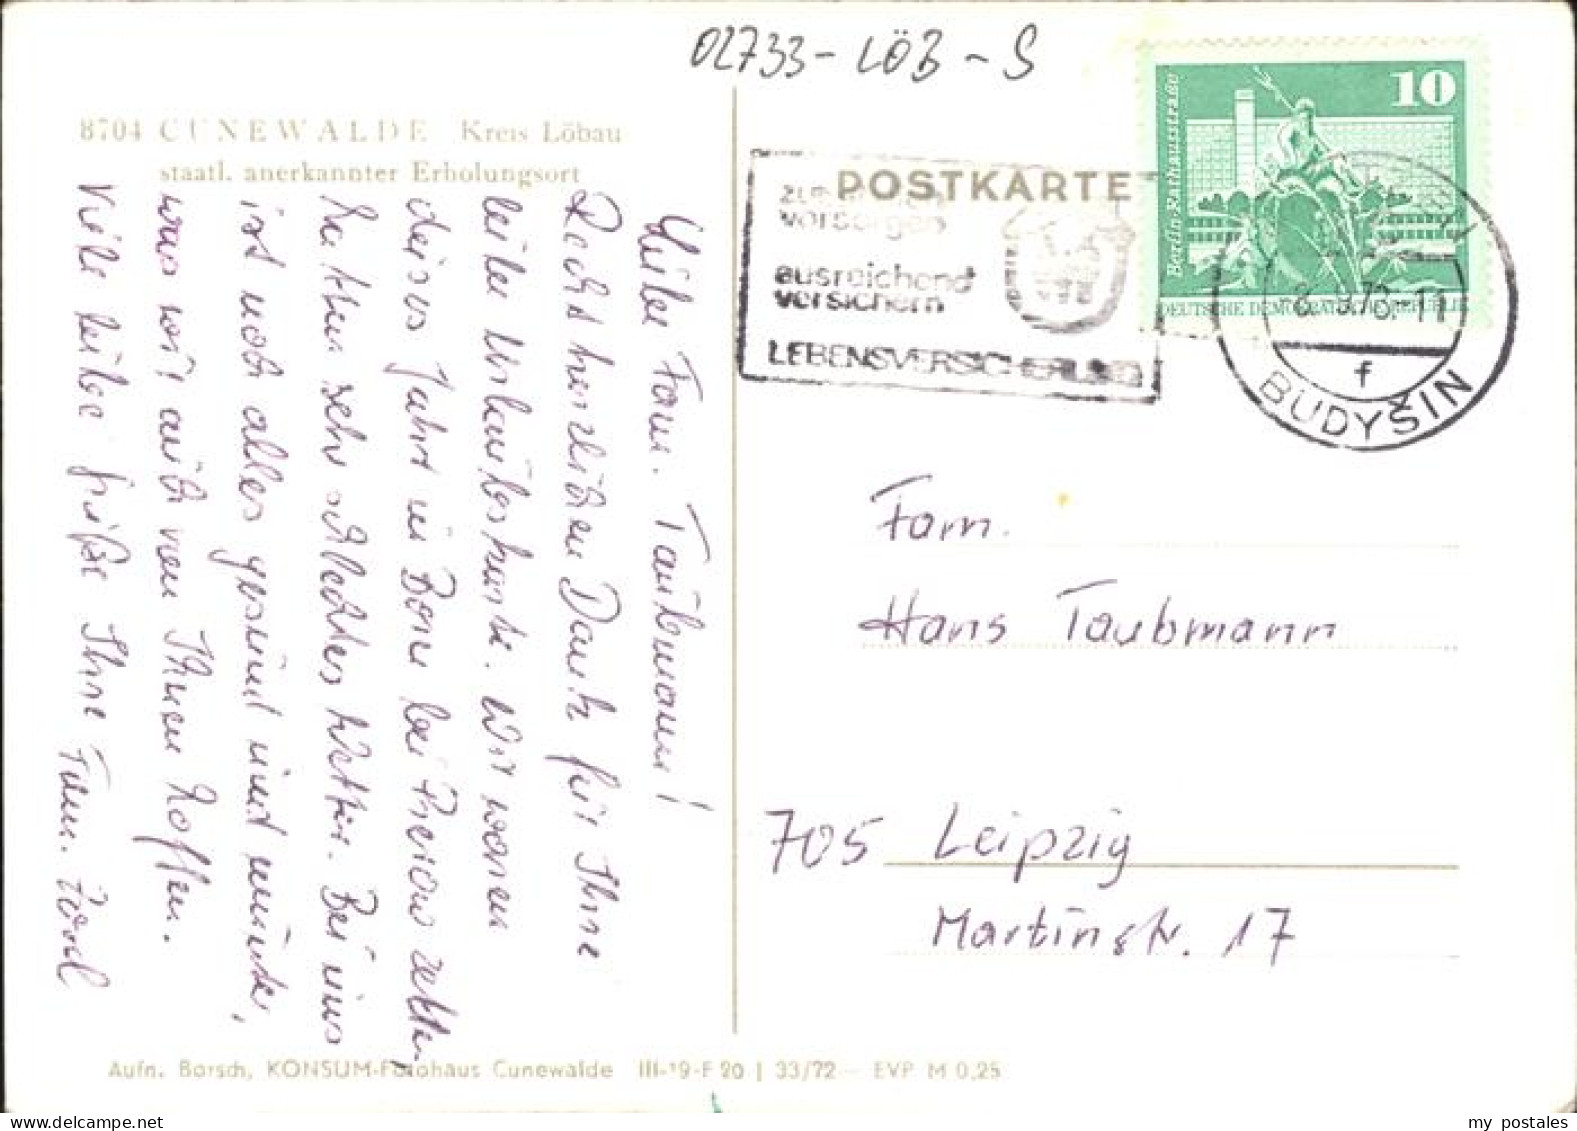 02733 - LÖB - S
8704 CUNEWALDE Kreis Löbau
staatl. anerkannter Erholungsort
POSTKARTE
vorsorgen
ausreichend
versichern
LEBENSVERSICHERUNG
10
Berlin-Rathausstraße
DEUTSCHE DEMOKRATISCHE REPUBLIK
BUDYŠIN
f
Liebe Fam. Taubmann!
Recht herzlichen Dank für Ihre
liebe Urlaubskarte. Wir waren
dieses Jahr in Berlin
hatten sehr schlechtes Wetter. Bei uns
ist noch alles gesund und munter,
was wir auch von Ihnen hoffen.
Viele liebe Grüße Ihre Fam.
Fam.
Hans Taubmann
705 Leipzig
Martinstr. 17
Aufn. Borsch, KONSUM-Fotohaus Cunewalde III-19-F 20 | 33/72 — EVP M 0,25
my postales